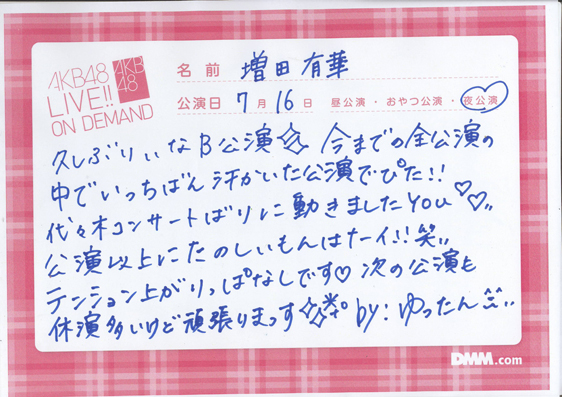 AKB48
LIVE!!
ON DEMAND
AKB
48
名前 増田有華
公演日 7月16日 昼公演・おやつ公演・夜公演
久しぶりぃなB公演 今までの全公演の
中でいっちばん汗かいた公演でぴた!!
代々木コンサートばりに動きましたYOU♡♡
公演以上にたのしいもんはなーイ!!笑
テンション上がりっぱなしです♡ 次の公演も
休演多いけど頑張りまっす by:ゆったん
DMM.com